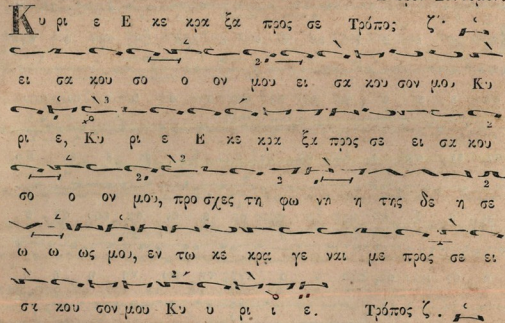 Κυ ρι ε Ε κε κρα ξα προς σε Τρόπος ζʹ.
ει σα κου σο ο ον μου ει σα κου σον μου Κυ
ρι ε, Κυ ρι ε Ε κε κρα ξα προς σε ει σα κου
σο ο ον μου, προ σχες τη φω νη η της δε η σε
ω ω ως μου, εν τω κε κρα γε ναι με προς σε ει
σα κου σον μου Κυ υ ρι ι ε. Τρόπος ζ.